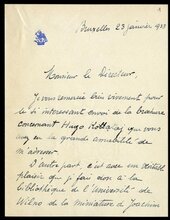 Bruxelles 23 janvier 1933
Monsieur le Directeur,
Je vous remercie bien vivement pour
le si intéressant envoi de la brochure
concernant Hugo Kołłątaj que vous
avez eu la grande amabilité de
m'adresser.
D'autre part, c'est avec un véritable
plaisir que je fais don à la
bibliothèque de l'Université de
Wilno de la miniature de Joachim